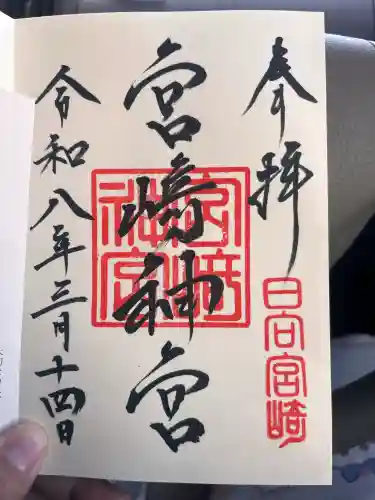 奉拝
日向宮崎
宮崎神宮
宮崎神宮
令和八年三月十四日